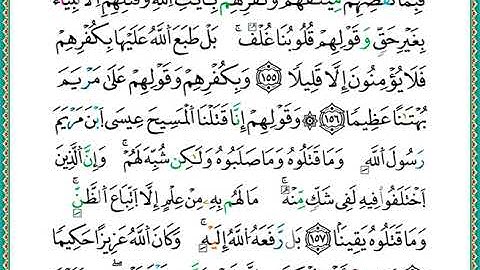 فَبِمَا نَقْضِهِم مِّيثَاقَهُمْ وَكُفْرِهِم بِآيَاتِ اللَّهِ وَقَتْلِهِمُ الْأَنبِيَاءَ
بِغَيْرِ حَقٍّ وَقَوْلِهِمْ قُلُوبُنَا غُلْفٌ ۚ بَلْ طَبَعَ اللَّهُ عَلَيْهَا بِكُفْرِهِمْ
فَلَا يُؤْمِنُونَ إِلَّا قَلِيلًا ﴿١٥٥﴾ وَبِكُفْرِهِمْ وَقَوْلِهِمْ عَلَىٰ مَرْيَمَ
بُهْتَانًا عَظِيمًا ﴿١٥٦﴾ ۞ وَقَوْلِهِمْ إِنَّا قَتَلْنَا الْمَسِيحَ عِيسَى ابْنَ مَرْيَمَ
رَسُولَ اللَّهِ ۚ وَمَا قَتَلُوهُ وَمَا صَلَبُوهُ وَلَٰكِن شُبِّهَ لَهُمْ ۚ وَإِنَّ الَّذِينَ
اخْتَلَفُوا فِيهِ لَفِي شَكٍّ مِّنْهُ ۚ مَا لَهُم بِهِ مِنْ عِلْمٍ إِلَّا اتِّبَاعَ الظَّنِّ ۚ
وَمَا قَتَلُوهُ يَقِينًا ﴿١٥٧﴾ بَل رَّفَعَهُ اللَّهُ إِلَيْهِ ۚ وَكَانَ اللَّهُ عَزِيزًا حَكِيمًا